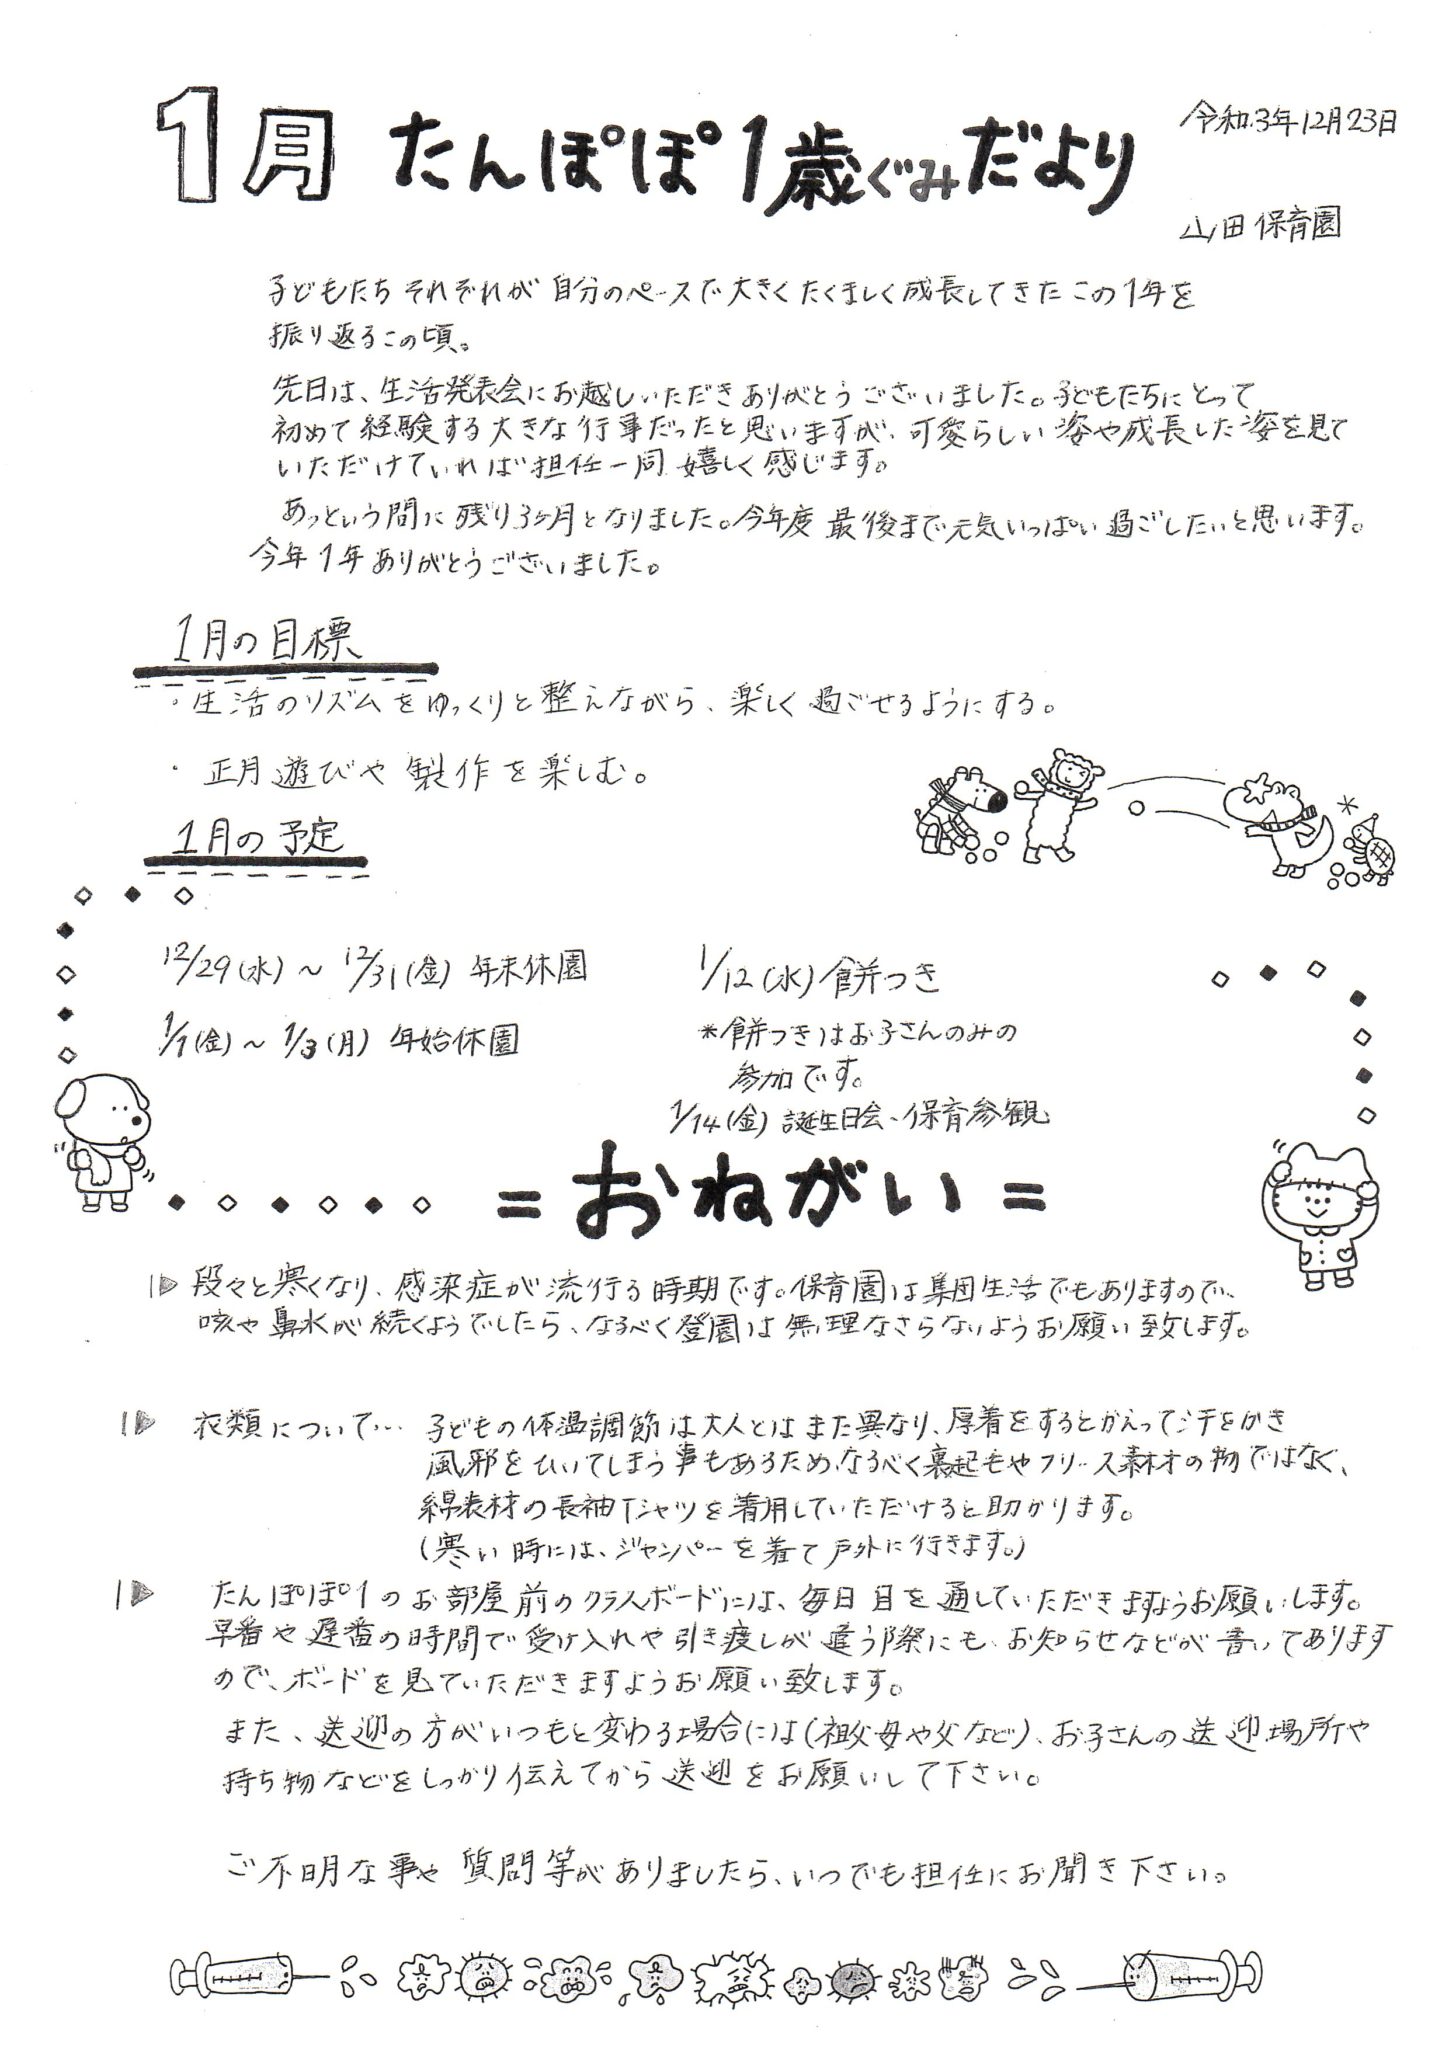 1月 たんぽぽ1歳ぐみだより
令和3年12月23日
山田保育園
子どもたちそれぞれが自分のペースで大きくたくましく成長してきたこの1年を
振り返るこの頃。
先日は、生活発表会にお越しいただきありがとうございました。子どもたちにとって
初めて経験する大きな行事だったと思いますが、可愛らしい姿や成長した姿を見て
いただけていれば担任一同嬉しく感じます。
あっという間に残り3ヶ月となりました。今年度最後まで元気いっぱい過ごしたいと思います。
今年1年ありがとうございました。
1月の目標
・生活のリズムをゆっくりと整えながら、楽しく過ごせるようにする。
・正月遊びや製作を楽しむ。
1月の予定
12/29(水)～12/31(金) 年末休園
1/1(金)～1/3(月) 年始休園
1/12(水)餅つき
*餅つきはお子さんのみの
参加です。
1/14(金)誕生日会、保育参観
=おねがい=
段々と寒くなり、感染症が流行る時期です。保育園は集団生活でもありますので、
咳や鼻水が続くようでしたら、なるべく登園は無理なさらないようお願い致します。
衣類について… 子どもの体温調節は大人とはまた異なり、厚着をするとかえって汗をかき
風邪をひいてしまう事もあるため、なるべく裏起毛やフリース素材の物ではなく、
綿素材の長袖Tシャツを着用していただけると助かります。
(寒い時には、ジャンパーを着て戸外に行きます。)
たんぽぽ1のお部屋前のクラスボードには、毎日目を通していただきますようお願いします。
早番や遅番の時間で受け入れや引き渡しが違う際にも、お知らせなどが書いてあります
ので、ボードを見ていただきますようお願い致します。
また、送迎の方がいつもと変わる場合には(祖父母や父など)、お子さんの送迎場所や
持ち物などをしっかり伝えてから送迎をお願いして下さい。
ご不明な事や質問等がありましたら、いつでも担任にお聞き下さい。